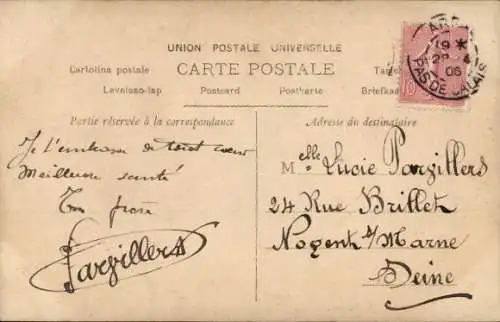 UNION POSTALE UNIVERSELLE
Cartolina postale CARTE POSTALE
Levelező-lap Postcard Postkarte Briefka
Partie réservée à la correspondance
Adresse du destinataire
ARRAS
19 *
4
06
PAS-DE-CALAIS
10
Je t'embrasse de tout cœur
Meilleure santé
Ton frère
Parvillers
Melle Lucie Parvillers
24 Rue Brillet
Nogent s/Marne
Seine